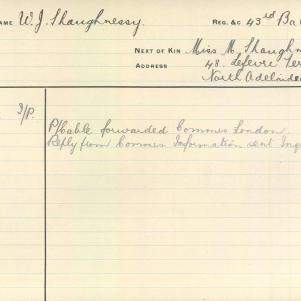 NAME W. J. Shaughnessy. REG. &C 43rd Ba
NEXT OF KIN Miss M. Shaughn
ADDRESS 48. Lefevre Ter
North Adelaide
3/P.
P/Cable forwarded Commis London.
Reply from Commis Information sent Inq